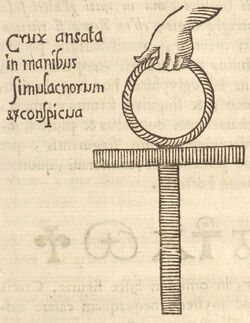 Crux ansata
in manibus
simulacrorum
conspicua